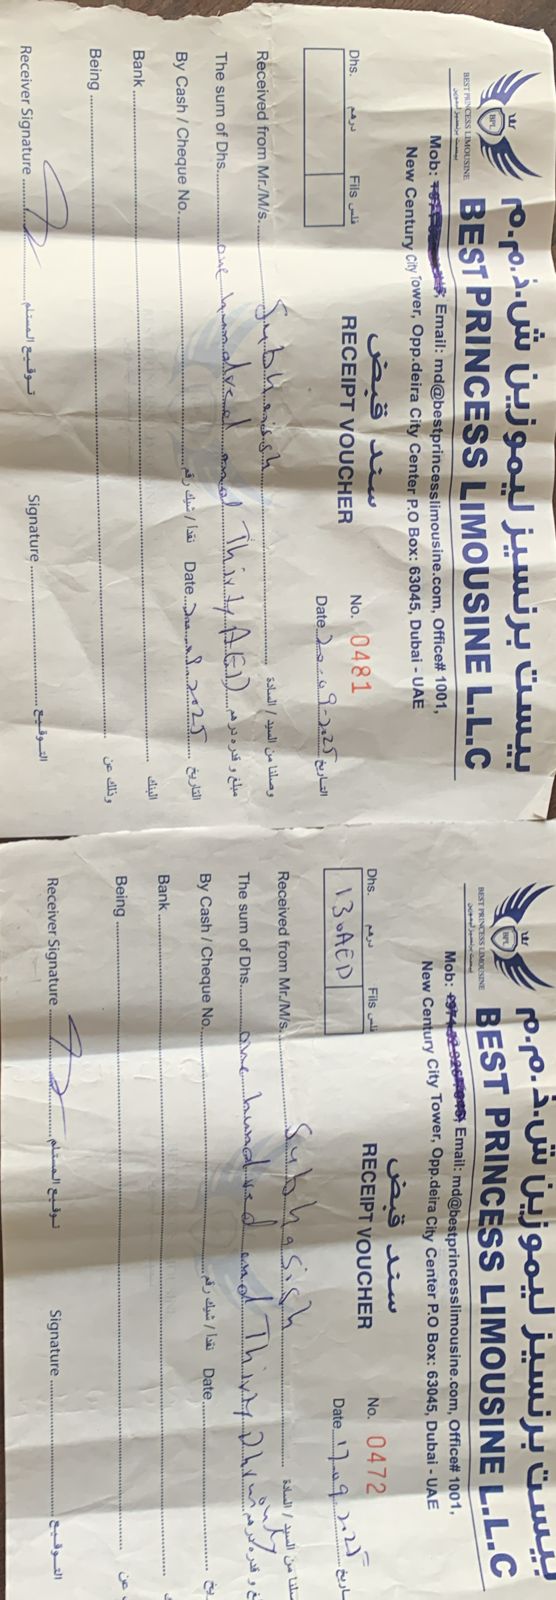 بيست برنسيز ليموزين ش.ذ.م.م
BEST PRINCESS LIMOUSINE L.L.C
BPL
BEST PRINCESS LIMOUSINE
بيست برنسيز ليموزين
Mob: Email: md@bestprincesslimousine.com, Office# 1001,
New Century City Tower, Opp.deira City Center P.O Box: 63045, Dubai - UAE
سند قبض
RECEIPT VOUCHER
No. 0481
Dhs. درهم Fils فلس
Date 20-09-2025 التاريخ
Received from Mr./M/s. Subhasish وصلنا من السيد / السادة
The sum of Dhs. one hundred and Thirty AED مبلغ و قدره درهم
By Cash / Cheque No. نقدا / شيك رقم Date 2025 التاريخ
Bank البنك
Being وذلك عن
Receiver Signature توقيع المستلم Signature التوقيع
بيست برنسيز ليموزين ش.ذ.م.م
BEST PRINCESS LIMOUSINE L.L.C
BPL
BEST PRINCESS LIMOUSINE
بيست برنسيز ليموزين
Mob: Email: md@bestprincesslimousine.com, Office# 1001,
New Century City Tower, Opp.deira City Center P.O Box: 63045, Dubai - UAE
سند قبض
RECEIPT VOUCHER
No. 0472
Dhs. درهم Fils فلس
130 AED
Date 17-09-2025
Received from Mr./M/s. Subhasish من السيد / السادة
The sum of Dhs. one hundred and Thirty Dhrm only و قدره درهم
By Cash / Cheque No. نقدا / شيك رقم Date
Bank
Being عن
Receiver Signature توقيع المستلم Signature التوقيع